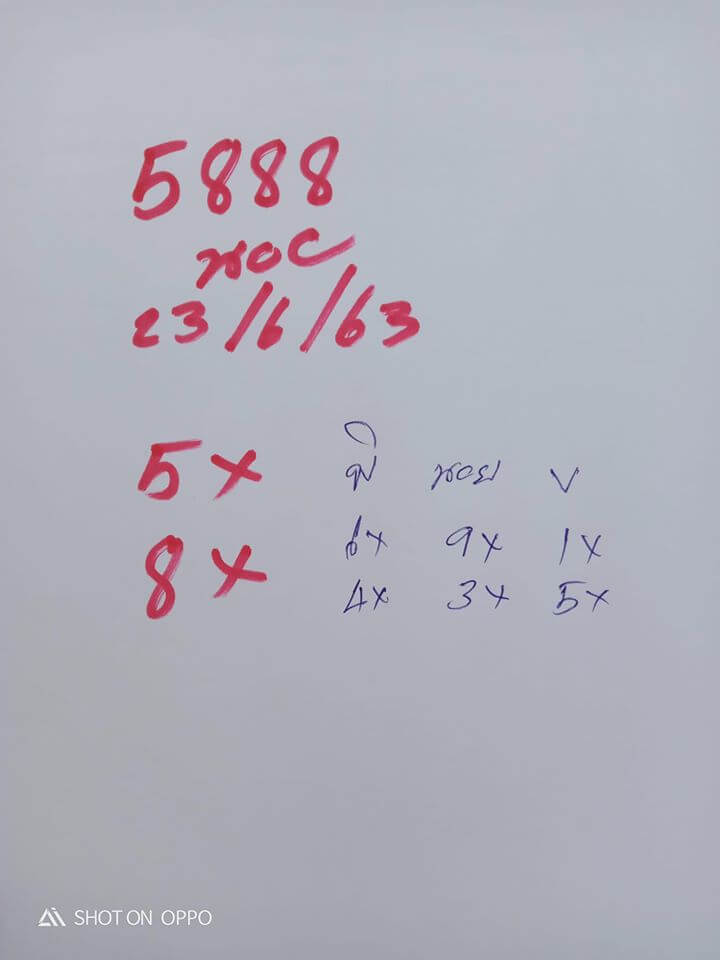 5888
ฮอย
23/6/63
5x
8x
พิ หอย V
6x 9x 1x
4x 3x 5x
SHOT ON OPPO